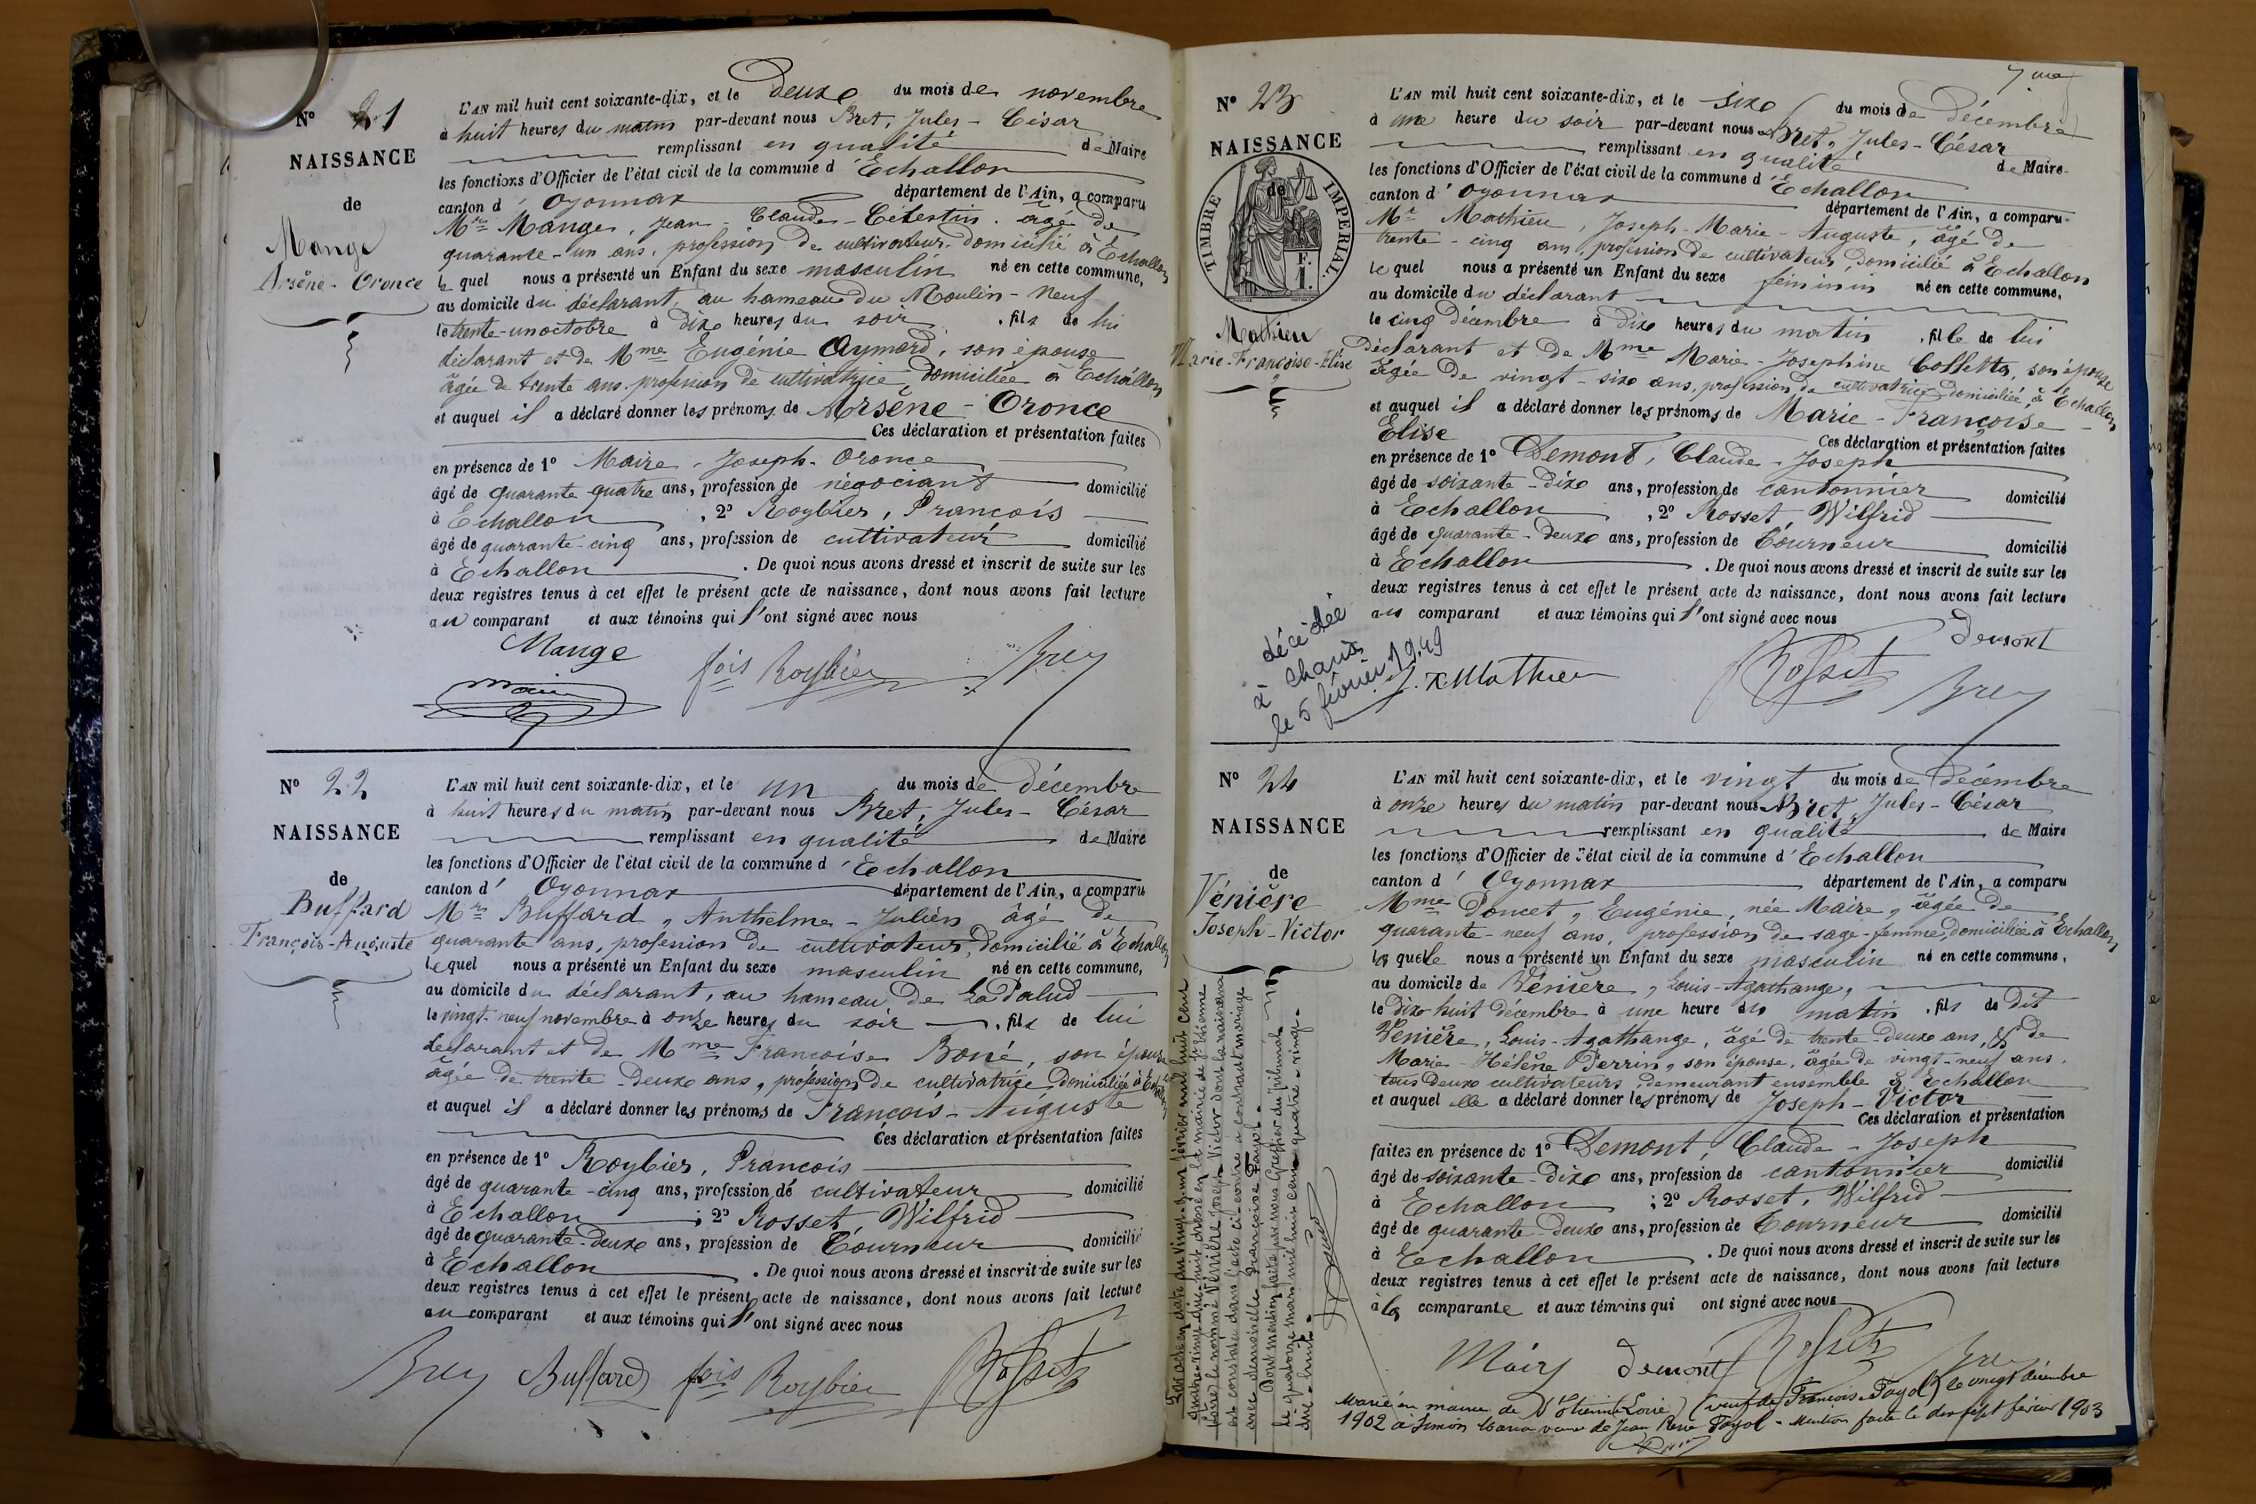 N° 21
NAISSANCE
de
Mange
Arsène-Oronce
L'AN mil huit cent soixante-dix, et le deux du mois de novembre
à huit heures du matin par-devant nous Bret, Jules-César
remplissant en qualité de Maire
les fonctions d'Officier de l'état civil de la commune d'Echallon
canton d'Oyonnax département de l'Ain, a comparu
Mr Mange, Jean-Claude-Célestin. âgé de
quarante-un ans, profession de cultivateur domicilié à Echallon
lequel nous a présenté un Enfant du sexe masculin né en cette commune,
au domicile du déclarant, au hameau du Moulin-Neuf
le trente-un octobre à dix heures du soir, fils de lui
déclarant et de Mme Eugénie Aymard, son épouse
âgée de trente ans, profession de cultivatrice, domiciliée à Echallon
et auquel il a déclaré donner les prénoms de Arsène-Oronce
Ces déclaration et présentation faites
en présence de 1° Maire, Joseph-Oronce
âgé de quarante quatre ans, profession de négociant domicilié
à Echallon, 2° Roybier, François
âgé de quarante-cinq ans, profession de cultivateur domicilié
à Echallon. De quoi nous avons dressé et inscrit de suite sur les
deux registres tenus à cet effet le présent acte de naissance, dont nous avons fait lecture
au comparant et aux témoins qui l'ont signé avec nous
Mange fois Roybier Bret
Maire
N° 22
NAISSANCE
de
Buffard
François-Auguste
L'AN mil huit cent soixante-dix, et le un du mois de décembre
à huit heures du matin par-devant nous Bret, Jules-César
remplissant en qualité de Maire
les fonctions d'Officier de l'état civil de la commune d'Echallon
canton d'Oyonnax département de l'Ain, a comparu
Mr Buffard, Anthelme-Julien âgé de
quarante ans, profession de cultivateur, domicilié à Echallon
lequel nous a présenté un Enfant du sexe masculin né en cette commune,
au domicile du déclarant, au hameau de La Palud
le vingt-neuf novembre à onze heures du soir, fils de lui
déclarant et de Mme Françoise Boné, son épouse
âgée de trente-deux ans, profession de cultivatrice domiciliée à Echallon
et auquel il a déclaré donner les prénoms de François-Auguste
Ces déclaration et présentation faites
en présence de 1° Roybier, François
âgé de quarante-cinq ans, profession de cultivateur domicilié
à Echallon; 2° Rosset, Wilfrid
âgé de quarante-deux ans, profession de Tourneur domicilié
à Echallon. De quoi nous avons dressé et inscrit de suite sur les
deux registres tenus à cet effet le présent acte de naissance, dont nous avons fait lecture
au comparant et aux témoins qui l'ont signé avec nous
Bret Buffard fois Roybier Rosset
7me
N° 23
NAISSANCE
de
TIMBRE IMPERIAL.
F.
1.
Mathieu
Marie-Françoise-Elise
L'AN mil huit cent soixante-dix, et le six du mois de décembre
à une heure du soir par-devant nous Bret, Jules-César
remplissant en qualité de Maire
les fonctions d'Officier de l'état civil de la commune d'Echallon
canton d'Oyonnax département de l'Ain, a comparu
Mr Mathieu, Joseph-Marie-Auguste, âgé de
trente-cinq ans, profession de cultivateur, domicilié à Echallon
lequel nous a présenté un Enfant du sexe féminin né en cette commune,
au domicile du déclarant
le cinq décembre à dix heures du matin, fille de lui
déclarant et de Mme Marie-Josephine Colletta, son épouse
âgée de vingt-six ans, profession de cultivatrice domiciliée à Echallon
et auquel il a déclaré donner les prénoms de Marie-Françoise-
Elise
Ces déclaration et présentation faites
en présence de 1° Demont, Claude-Joseph
âgé de soixante-dix ans, profession de cantonnier domicilié
à Echallon, 2° Rosset, Wilfrid
âgé de quarante-deux ans, profession de Tourneur domicilié
à Echallon. De quoi nous avons dressé et inscrit de suite sur les
deux registres tenus à cet effet le présent acte de naissance, dont nous avons fait lecture
au comparant et aux témoins qui l'ont signé avec nous
Demont
Mathieu Rosset Bret
décédée
à Charix
le 5 février 1949
N° 24
NAISSANCE
de
Vénière
Joseph-Victor
L'AN mil huit cent soixante-dix, et le vingt du mois de Décembre
à onze heures du matin par-devant nous Bret, Jules-César
remplissant en qualité de Maire
les fonctions d'Officier de l'état civil de la commune d'Echallon
canton d'Oyonnax département de l'Ain, a comparu
Mme Poncet, Eugénie, née Maire, âgée de
quarante-neuf ans, profession de sage-femme, domiciliée à Echallon
laquelle nous a présenté un Enfant du sexe masculin né en cette commune,
au domicile de Vénière, Louis-Agathange,
le dix huit décembre à une heure du matin, fils de dit
Vénière, Louis-Agathange, âgé de trente-deux ans, & de
Marie-Hélène Perrin, son épouse, âgée de vingt-neuf ans,
tous deux cultivateurs, demeurant ensemble à Echallon
et auquel elle a déclaré donner les prénoms de Joseph-Victor
Ces déclaration et présentation
faites en présence de 1° Demont, Claude-Joseph
âgé de soixante-dix ans, profession de cantonnier domicilié
à Echallon; 2° Rosset, Wilfrid
âgé de quarante-deux ans, profession de Tourneur domicilié
à Echallon. De quoi nous avons dressé et inscrit de suite sur les
deux registres tenus à cet effet le présent acte de naissance, dont nous avons fait lecture
à la comparante et aux témoins qui ont signé avec nous
Mairy Demont Rosset Bret
Par acte en date du vingt-un février mil huit cent
quatre-vingt-dix-huit dressé en la mairie de St Etienne
(Loire) le nommé Vénière Joseph Victor dont la naissance
est constatée dans l'acte ci-contre a contracté mariage
avec demoiselle Françoise Fayol.
Dont mention faite par nous Greffier du Tribunal
le quatorze mars mil huit cent quatre-vingt-
dix-huit.
Marié en mairie de St Etienne Loire (veuf de Françoise Fayol) le vingt décembre
1902 à Simon Maria veuve de Jean René Fayol - Mention faite le dix sept février 1903